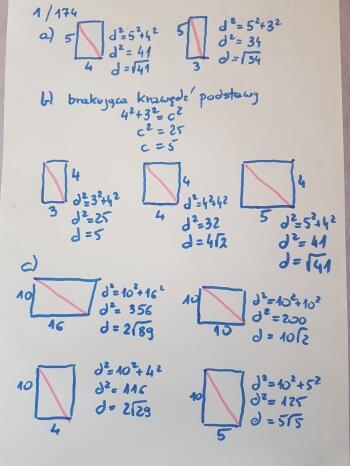 1/174
a)
5
4
d²=5²+4²
d²=41
d=√41
5
3
d²=5²+3²
d²=34
d=√34
b) brakująca krawędź podstawy
4²+3²=c²
c²=25
c=5
4
3
d²=3²+4²
d²=25
d=5
4
4
d²=4²+4²
d²=32
d=4√2
4
5
d²=5²+4²
d²=41
d=√41
c)
10
16
d²=10²+16²
d²=356
d=2√89
10
10
d²=10²+10²
d²=200
d=10√2
10
4
d²=10²+4²
d²=116
d=2√29
10
5
d²=10²+5²
d²=125
d=5√5